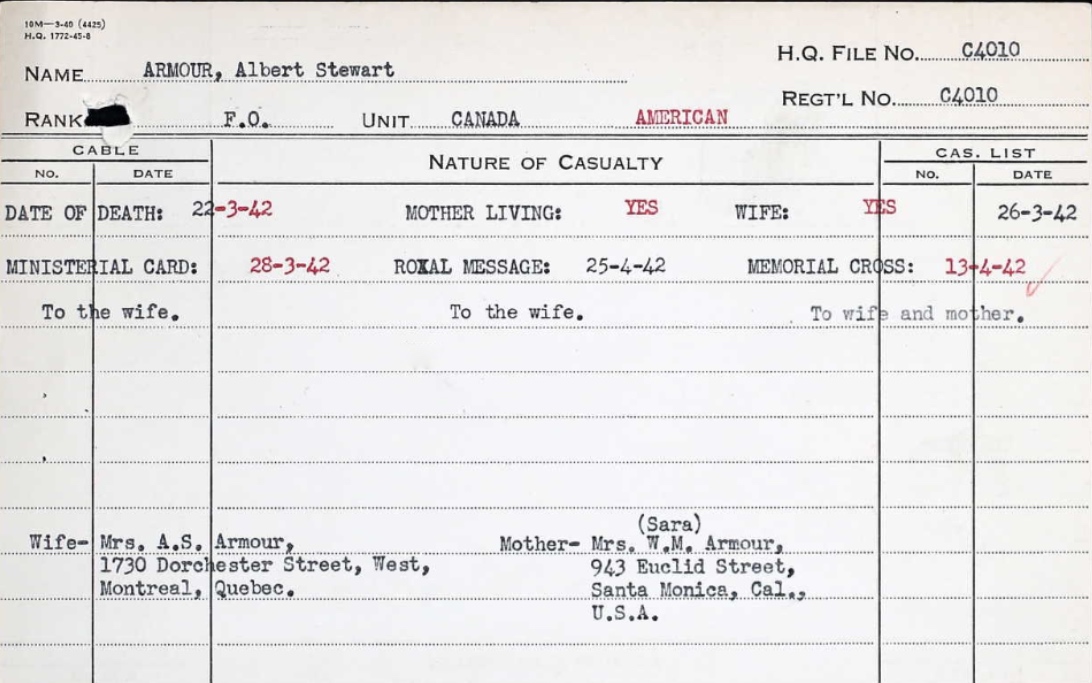 10M—3-40 (4425)
H.Q. 1772-45-8
H.Q. FILE NO. C4010
NAME ARMOUR, Albert Stewart
REGT'L NO. C4010
RANK F.O. UNIT CANADA AMERICAN
CABLE NATURE OF CASUALTY CAS. LIST
NO. DATE NO. DATE
DATE OF DEATH: 22-3-42 MOTHER LIVING: YES WIFE: YES 26-3-42
MINISTERIAL CARD: 28-3-42 ROYAL MESSAGE: 25-4-42 MEMORIAL CROSS: 13-4-42
To the wife. To the wife. To wife and mother.
(Sara)
Wife- Mrs. A.S. Armour, Mother- Mrs. W.M. Armour,
1730 Dorchester Street, West, 943 Euclid Street,
Montreal, Quebec. Santa Monica, Cal.,
U.S.A.